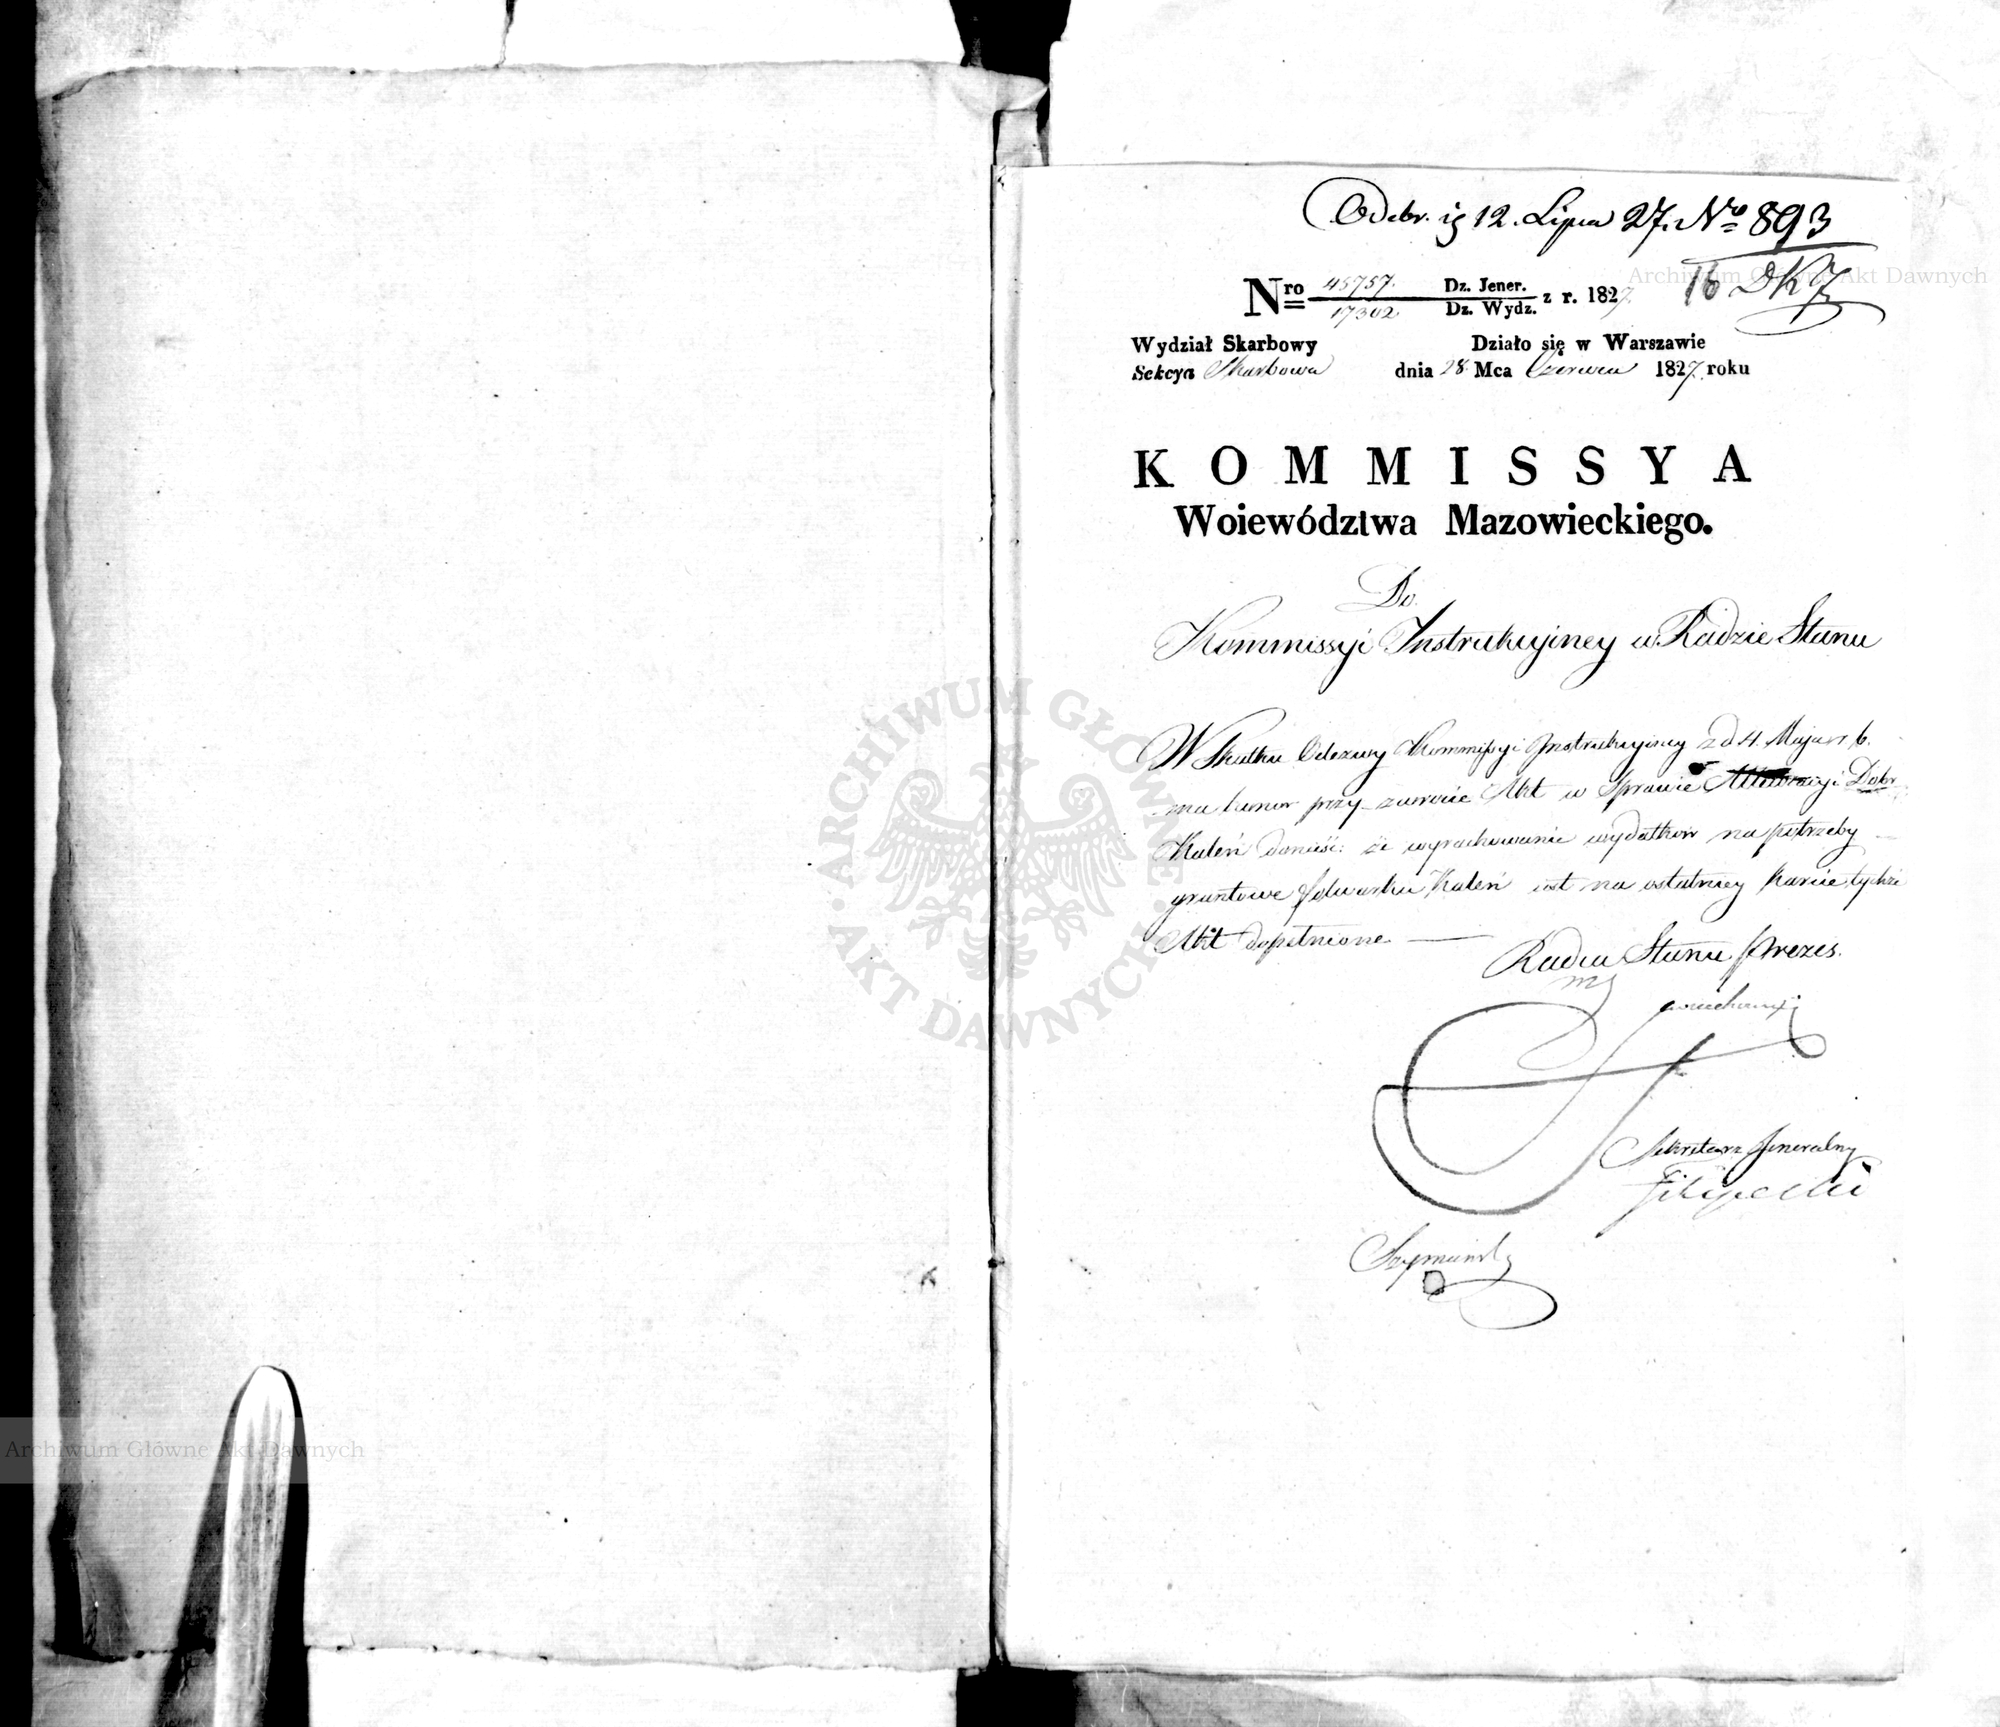 Odebr. 12. Lipca 27. No 893
16 DKJ
Nro 45757. Dz. Jener. z r. 1827.
17302 Dz. Wydz.
Wydział Skarbowy Działo się w Warszawie
Sekcya Skarbowa dnia 28 Mca Czerwca 1827. roku
KOMMISSYA
Woiewództwa Mazowieckiego.
Do
Kommissyi Instrukcyiney w Radzie Stanu
W Skutku Odezwy Kommissyi Instrukcyiney z d 4. Maja r. b.
ma honor przy zwrocie Akt w Sprawie Dobr
Kaleń donieść: że wyrachowanie wydatków na potrzeby
gruntowe folwarku Kaleń iest na ostatniey karcie tychże
Akt dopełnione
Radca Stanu Prezes.
Sekretarz Jeneralny
Filipecki
ARCHIWUM GŁÓWNE AKT DAWNYCH
Archiwum Główne Akt Dawnych
Archiwum Główne Akt Dawnych